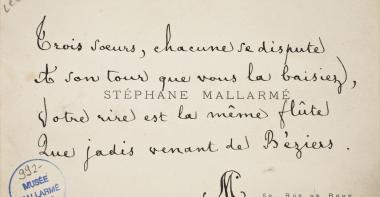 Trois sœurs, chacune se dispute
A son tour que vous la baisiez,
STÉPHANE MALLARMÉ
Votre rire est la même flûte
Que jadis venant de Béziers.
992-
MUSÉE
MALLARMÉ
M
RUE DE ROME